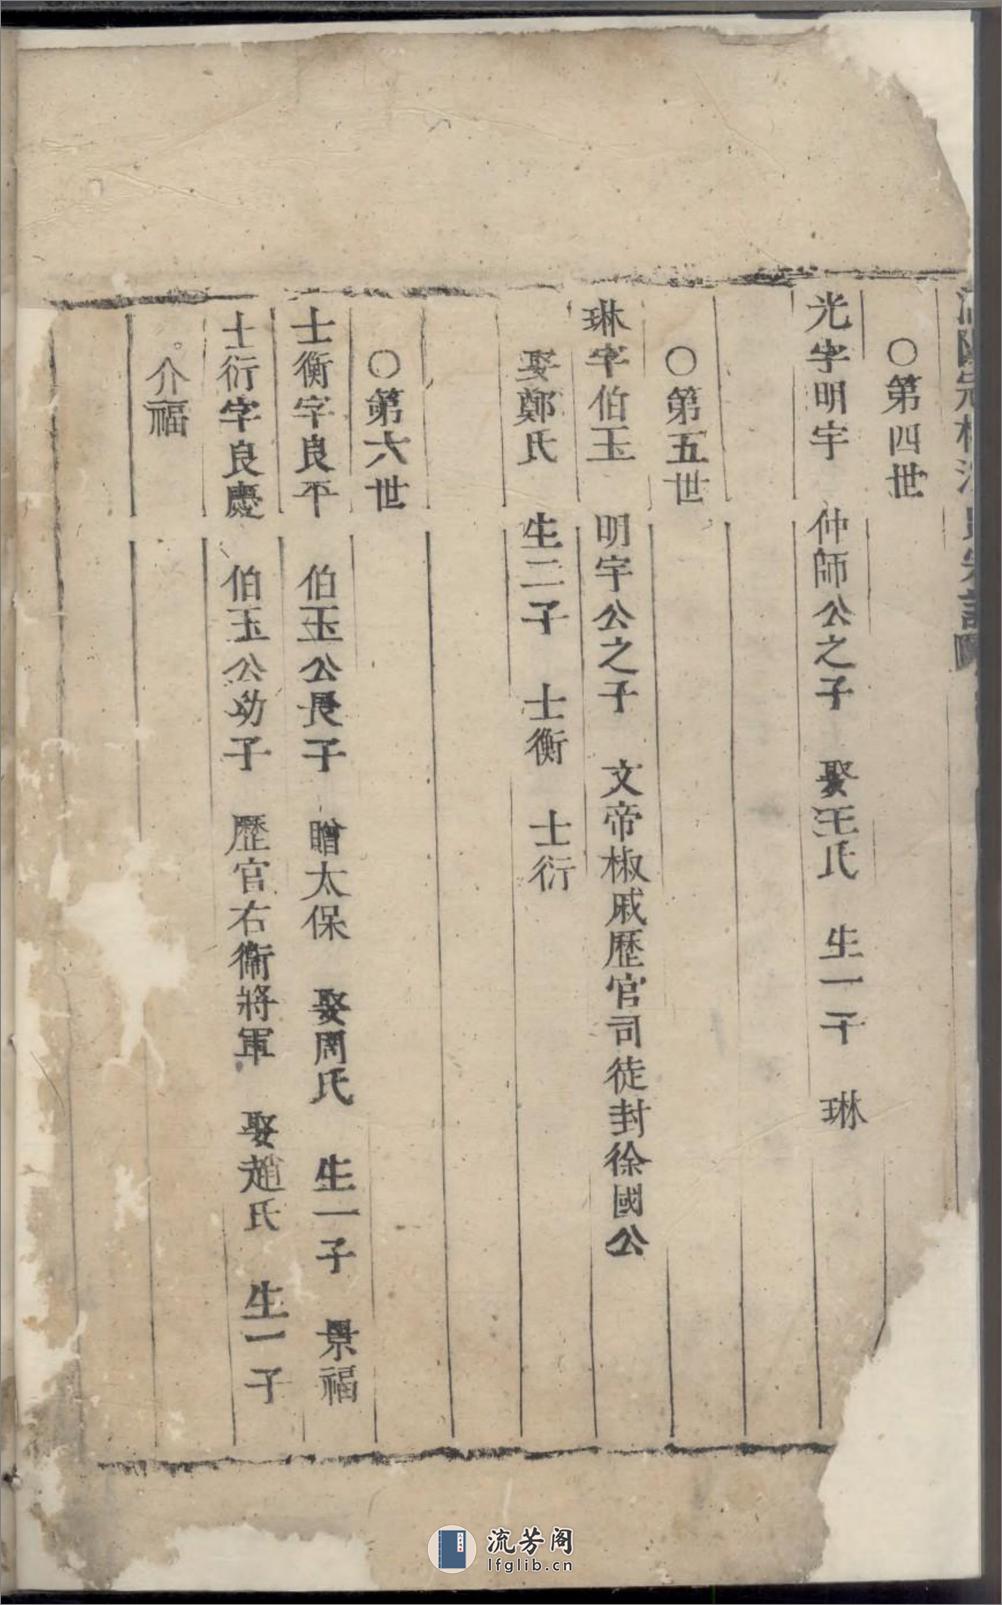 ○第四世
光字明宇 仲師公之子 娶王氏 生一子 琳
○第五世
琳字伯玉 明宇公之子 文帝椒戚歷官司徒封徐國公
娶鄭氏 生二子 士衡 士衍
○第六世
士衡字良平 伯玉公長子 贈太保 娶周氏 生一子 景福
士衍字良慶 伯玉公幼子 歷官右衛將軍 娶趙氏 生一子
介福
流芳阁
lfglib.cn